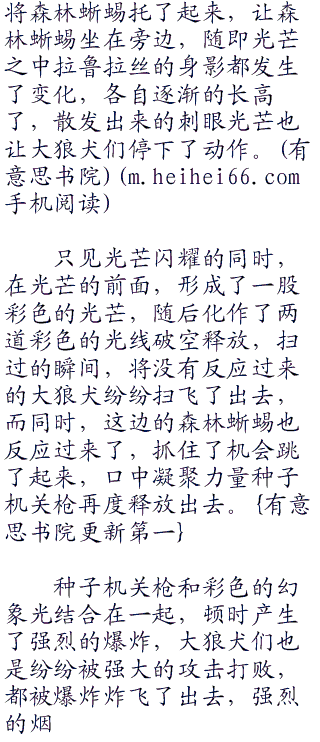 将森林蜥蜴托了起来，让森
林蜥蜴坐在旁边，随即光芒
之中拉鲁拉丝的身影都发生
了变化，各自逐渐的长高
了，散发出来的刺眼光芒也
让大狼犬们停下了动作。(有
意思书院)(m.heihei66.com
手机阅读)
只见光芒闪耀的同时，
在光芒的前面，形成了一股
彩色的光芒，随后化作了两
道彩色的光线破空释放，扫
过的瞬间，将没有反应过来
的大狼犬纷纷扫飞了出去，
而同时，这边的森林蜥蜴也
反应过来了，抓住了机会跳
了起来，口中凝聚力量种子
机关枪再度释放出去。{有意
思书院更新第一}
种子机关枪和彩色的幻
象光结合在一起，顿时产生
了强烈的爆炸，大狼犬们也
是纷纷被强大的攻击打败，
都被爆炸炸飞了出去，强烈
的烟